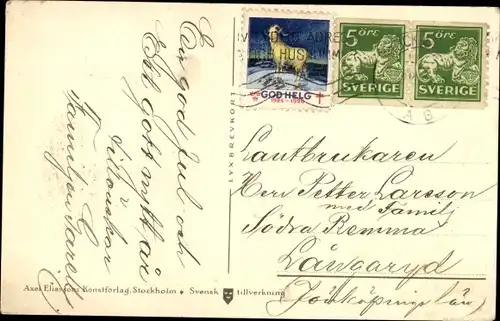 En god Jul och
Ett Gott nytt år
Tillönskar
Familjen
GOD HELG
1925-1926
5 ÖRE
SVERIGE
5 ÖRE
SVERIGE
LYXBREVKORT
Lantbrukaren
Herr Petter Larsson
med Familj
Södra Remma
Långaryd
Jönköpings län
Axel Eliassons Konstförlag, Stockholm • Svensk tillverkning